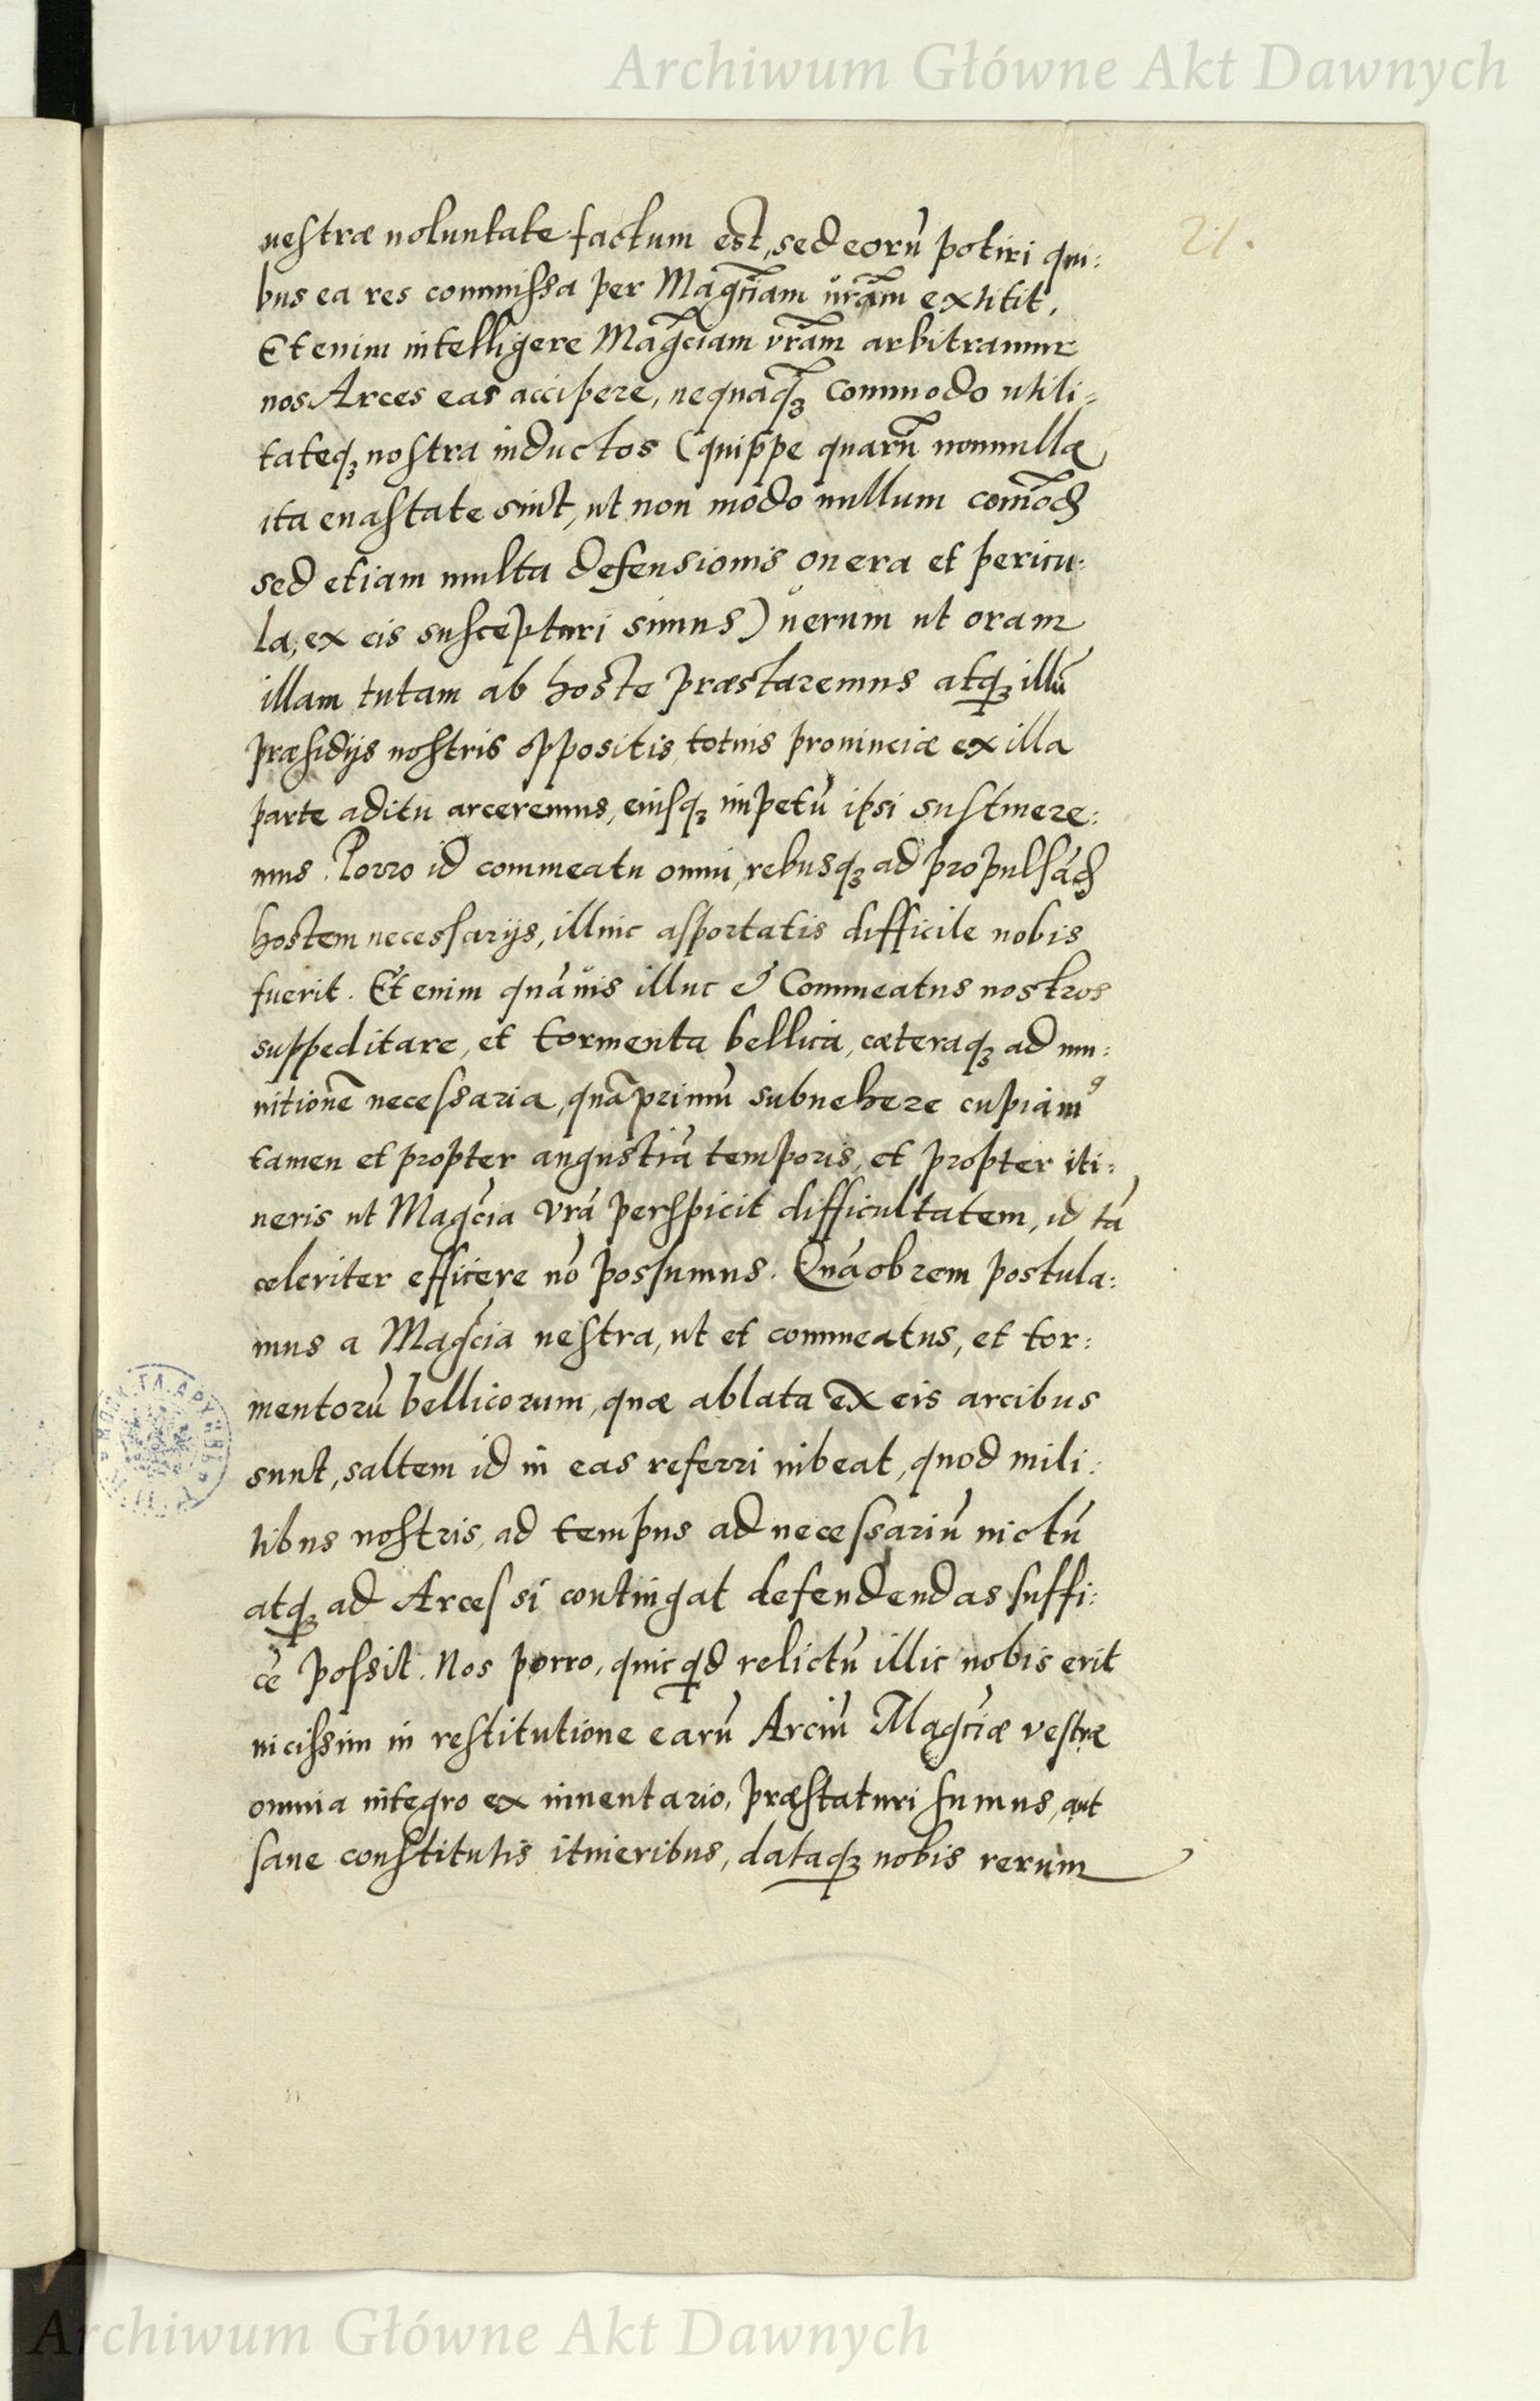 Archiwum Główne Akt Dawnych
21.
uestræ uoluntate factum est, sed eorũ potiri qui:
bus ea res commissa per Magc̃iam ũram extitit,
Et enim intelligere Magc̃iam vrãm arbitramur
nos Arces eas accipere, nequaq̃ʒ commodo utili=
tateqʒ nostra inductos (quippe quarũ nonnullæ
ita euastatæ sint, ut non modo nullum com̃od
sed etiam multa defensionis onera et pericu:
la, ex eis suscepturi simus) uerum ut oram
illam tutam ab hoste præstaremus atqʒ illũ
præsidijs nostris oppositis, totius prouinciæ ex illa
parte aditu arceremus, eiusqʒ impetũ ipsi sustinere:
mus. Porro id commeatu omni, rebusqʒ ad propulsãd
hostem necessarijs, illinc asportatis difficile nobis
fuerit. Et enim quãuis illuc & Commeatus nostros
suppeditare, et tormenta bellica, cæteraqʒ ad mu:
nitionẽ necessaria, quãprimũ subuehere cupiam⁹
tamen et propter angustiã temporis, et propter iti:
neris ut Magc̃ia vrã perspicit difficultatem, id tã
celeriter efficere nõ possumus. Quãobrem postula:
mus a Magc̃ia uestra, ut et commeatus, et tor:
mentorũ bellicorum, quæ ablata ex eis arcibus
sunt, saltem id in eas referri iubeat, quod mili:
tibus nostris, ad tempus ad necessariũ uictũ
atqʒ ad Arces si contingat defendendas suffi:
cẽ possit. Nos porro, quicqd relictũ illic nobis erit
uicissim in restitutione earũ Arciũ Magc̃iæ vestræ
omnia integro ex inuentario, præstaturi sumus, aut
sane constitutis itineribus, dataqʒ nobis rerum
Archiwum Główne Akt Dawnych